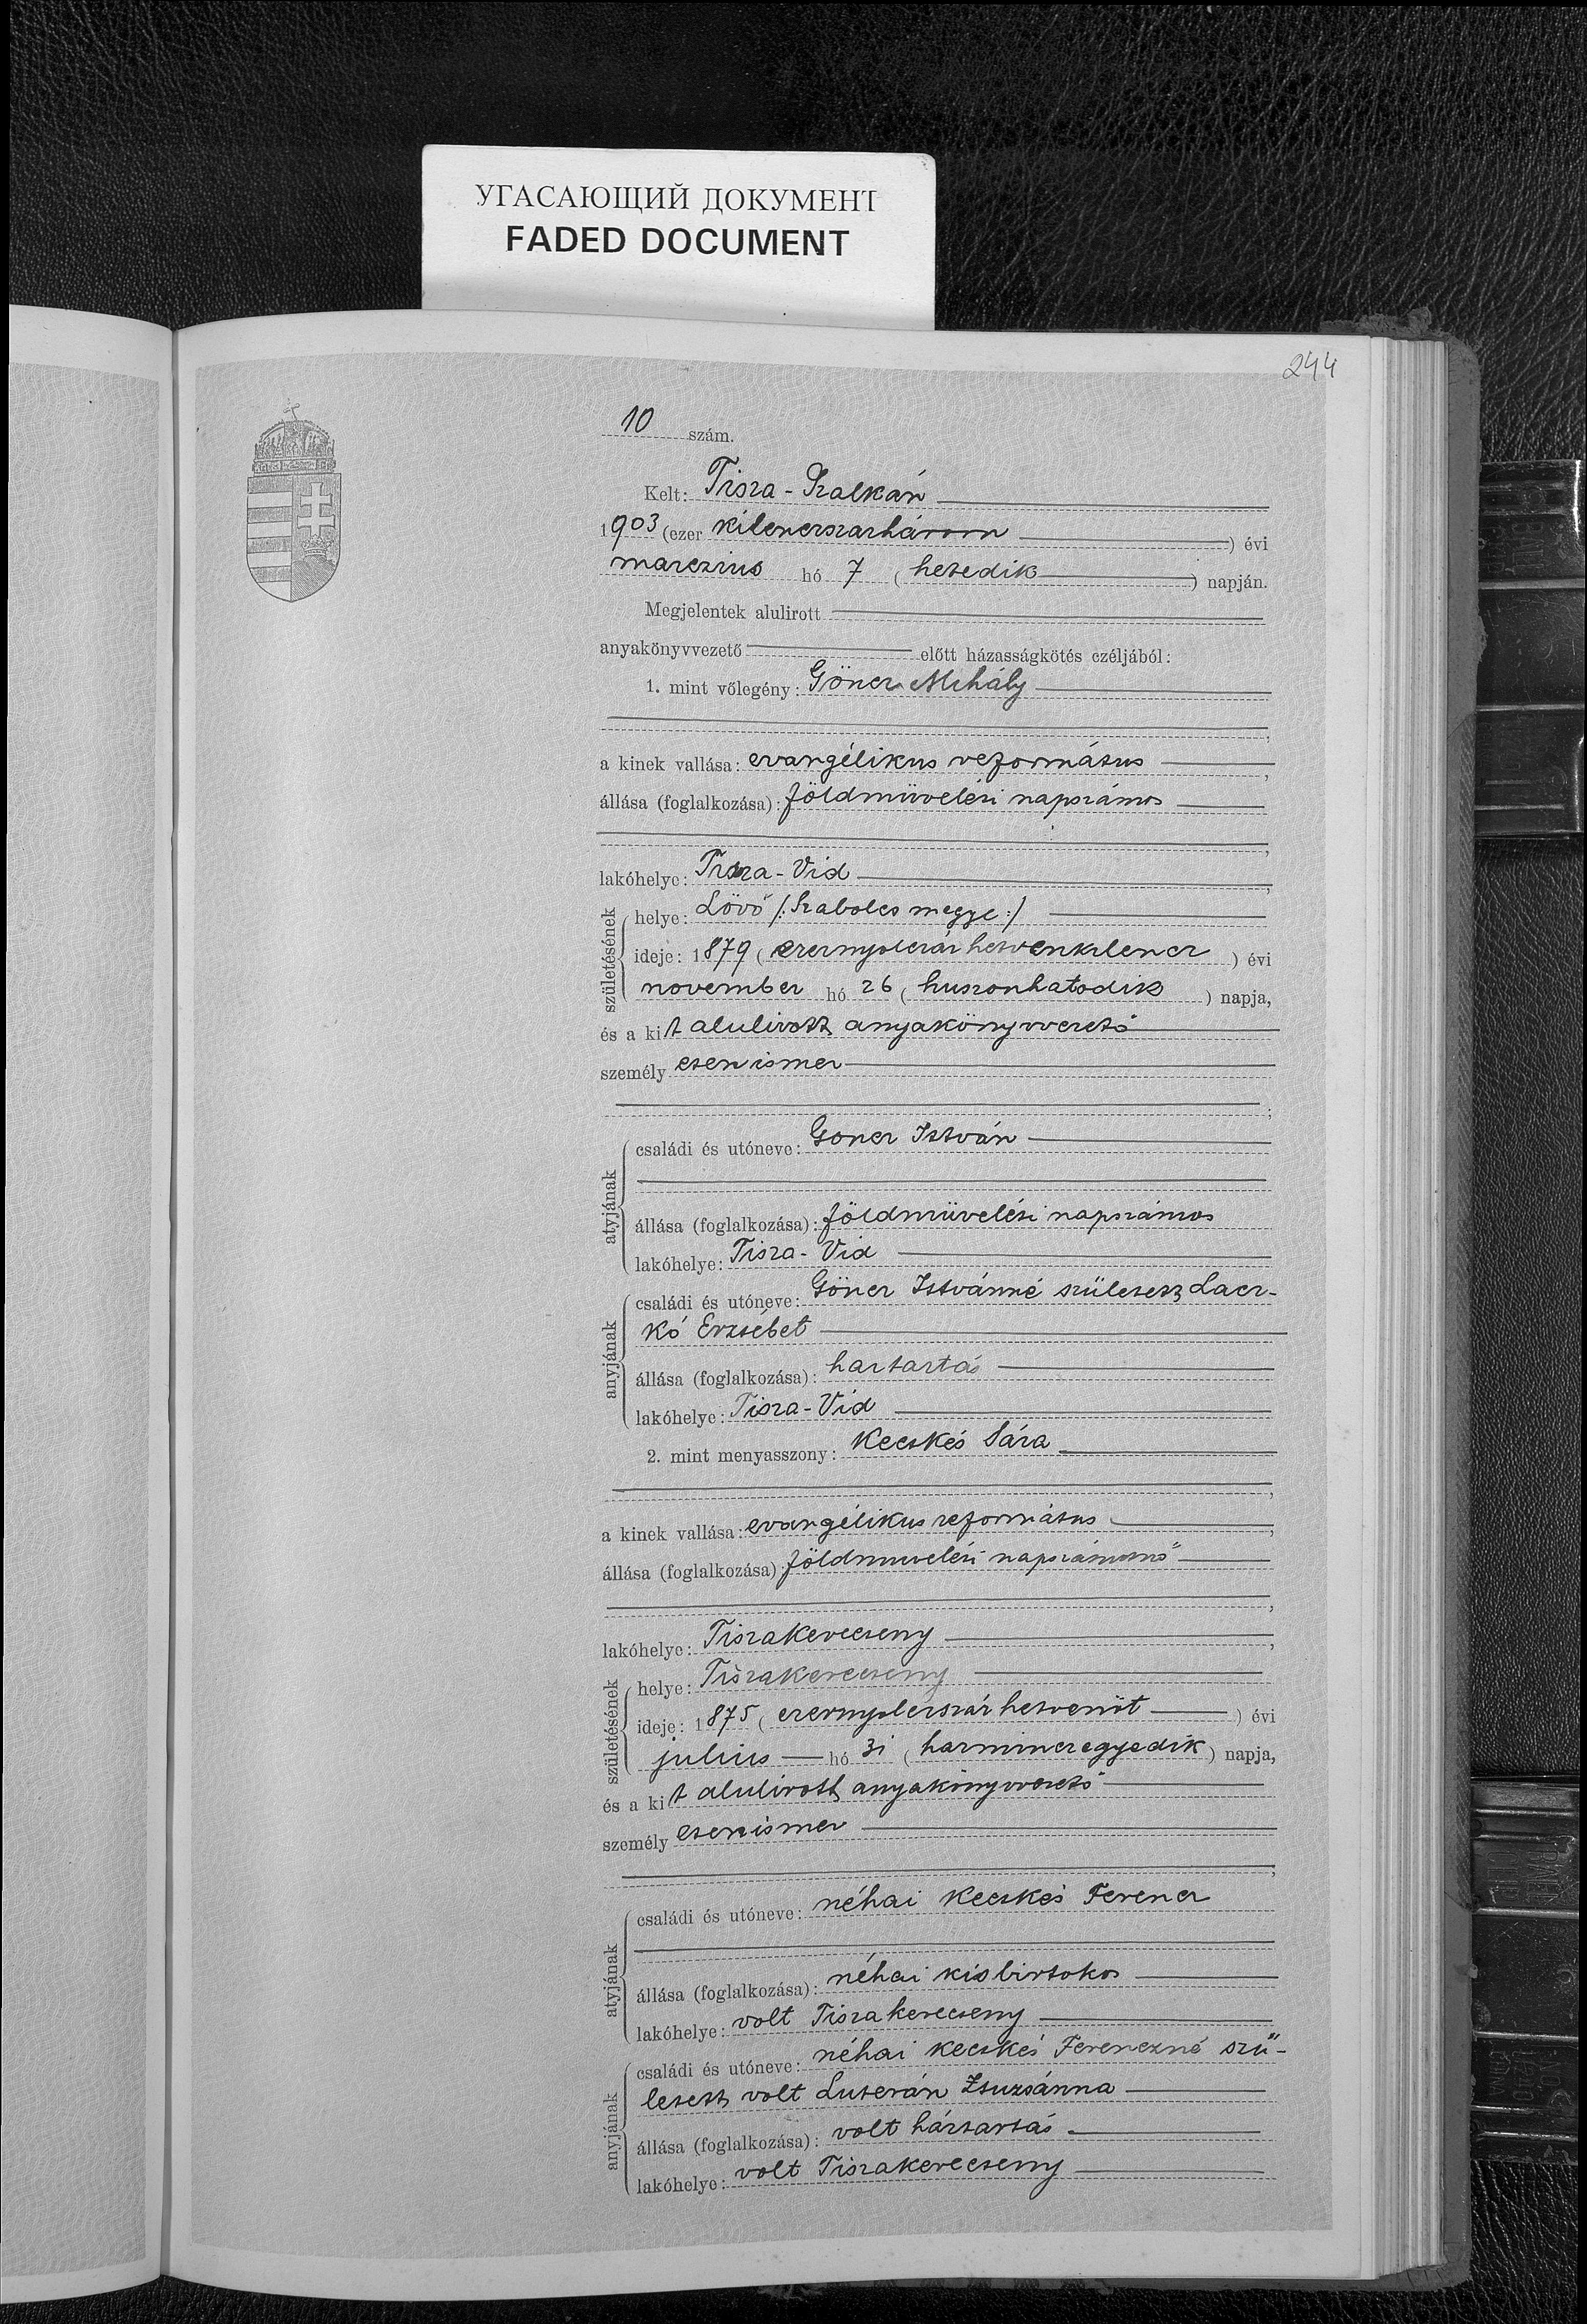 УГАСАЮЩИЙ ДОКУМЕНТ
FADED DOCUMENT
244
10 szám.
Kelt: Tisza-Szalkán
1903 (ezer kilenczszázhárom) évi
marczius hó 7 (hetedik) napján.
Megjelentek alulirott
anyakönyvvezető előtt házasságkötés czéljából:
1. mint vőlegény: Göncz Mihály
a kinek vallása: evangélikus református,
állása (foglalkozása): földmüvelési napszámos
lakóhelye: Tisza-Vid,
születésének
helye: Lövő /: Szabolcs megye :/
ideje: 1879 (ezernyolczszáz hetvenkilencz) évi
november hó 26 (huszonhatodik) napja,
és a kit alulirott anyakönyvvezető
személyesen ismer
;
atyjának
családi és utóneve: Göncz István
állása (foglalkozása): földmüvelési napszámos
lakóhelye: Tisza-Vid
anyjának
családi és utóneve: Göncz Istvánné született Lacz-
kó Erzsébet
állása (foglalkozása): háztartás
lakóhelye: Tisza-Vid
2. mint menyasszony: Kecskés Sára
,
a kinek vallása: evangélikus református,
állása (foglalkozása): földmuvelési napszámosnő
,
lakóhelye: Tiszakerecseny,
születésének
helye: Tiszakerecseny
ideje: 1875 (ezernyolczszáz hetvenöt) évi
julius hó 31 (harminczegyedik) napja,
és a kit alulirott anyakönyvvezető
személyesen ismer
;
atyjának
családi és utóneve: néhai Kecskés Ferencz
állása (foglalkozása): néhai kisbirtokos
lakóhelye: volt Tiszakerecseny
anyjának
családi és utóneve: néhai Kecskés Ferenczné szü-
letett volt Luterán Zsuzsánna
állása (foglalkozása): volt háztartás
lakóhelye: volt Tiszakerecseny